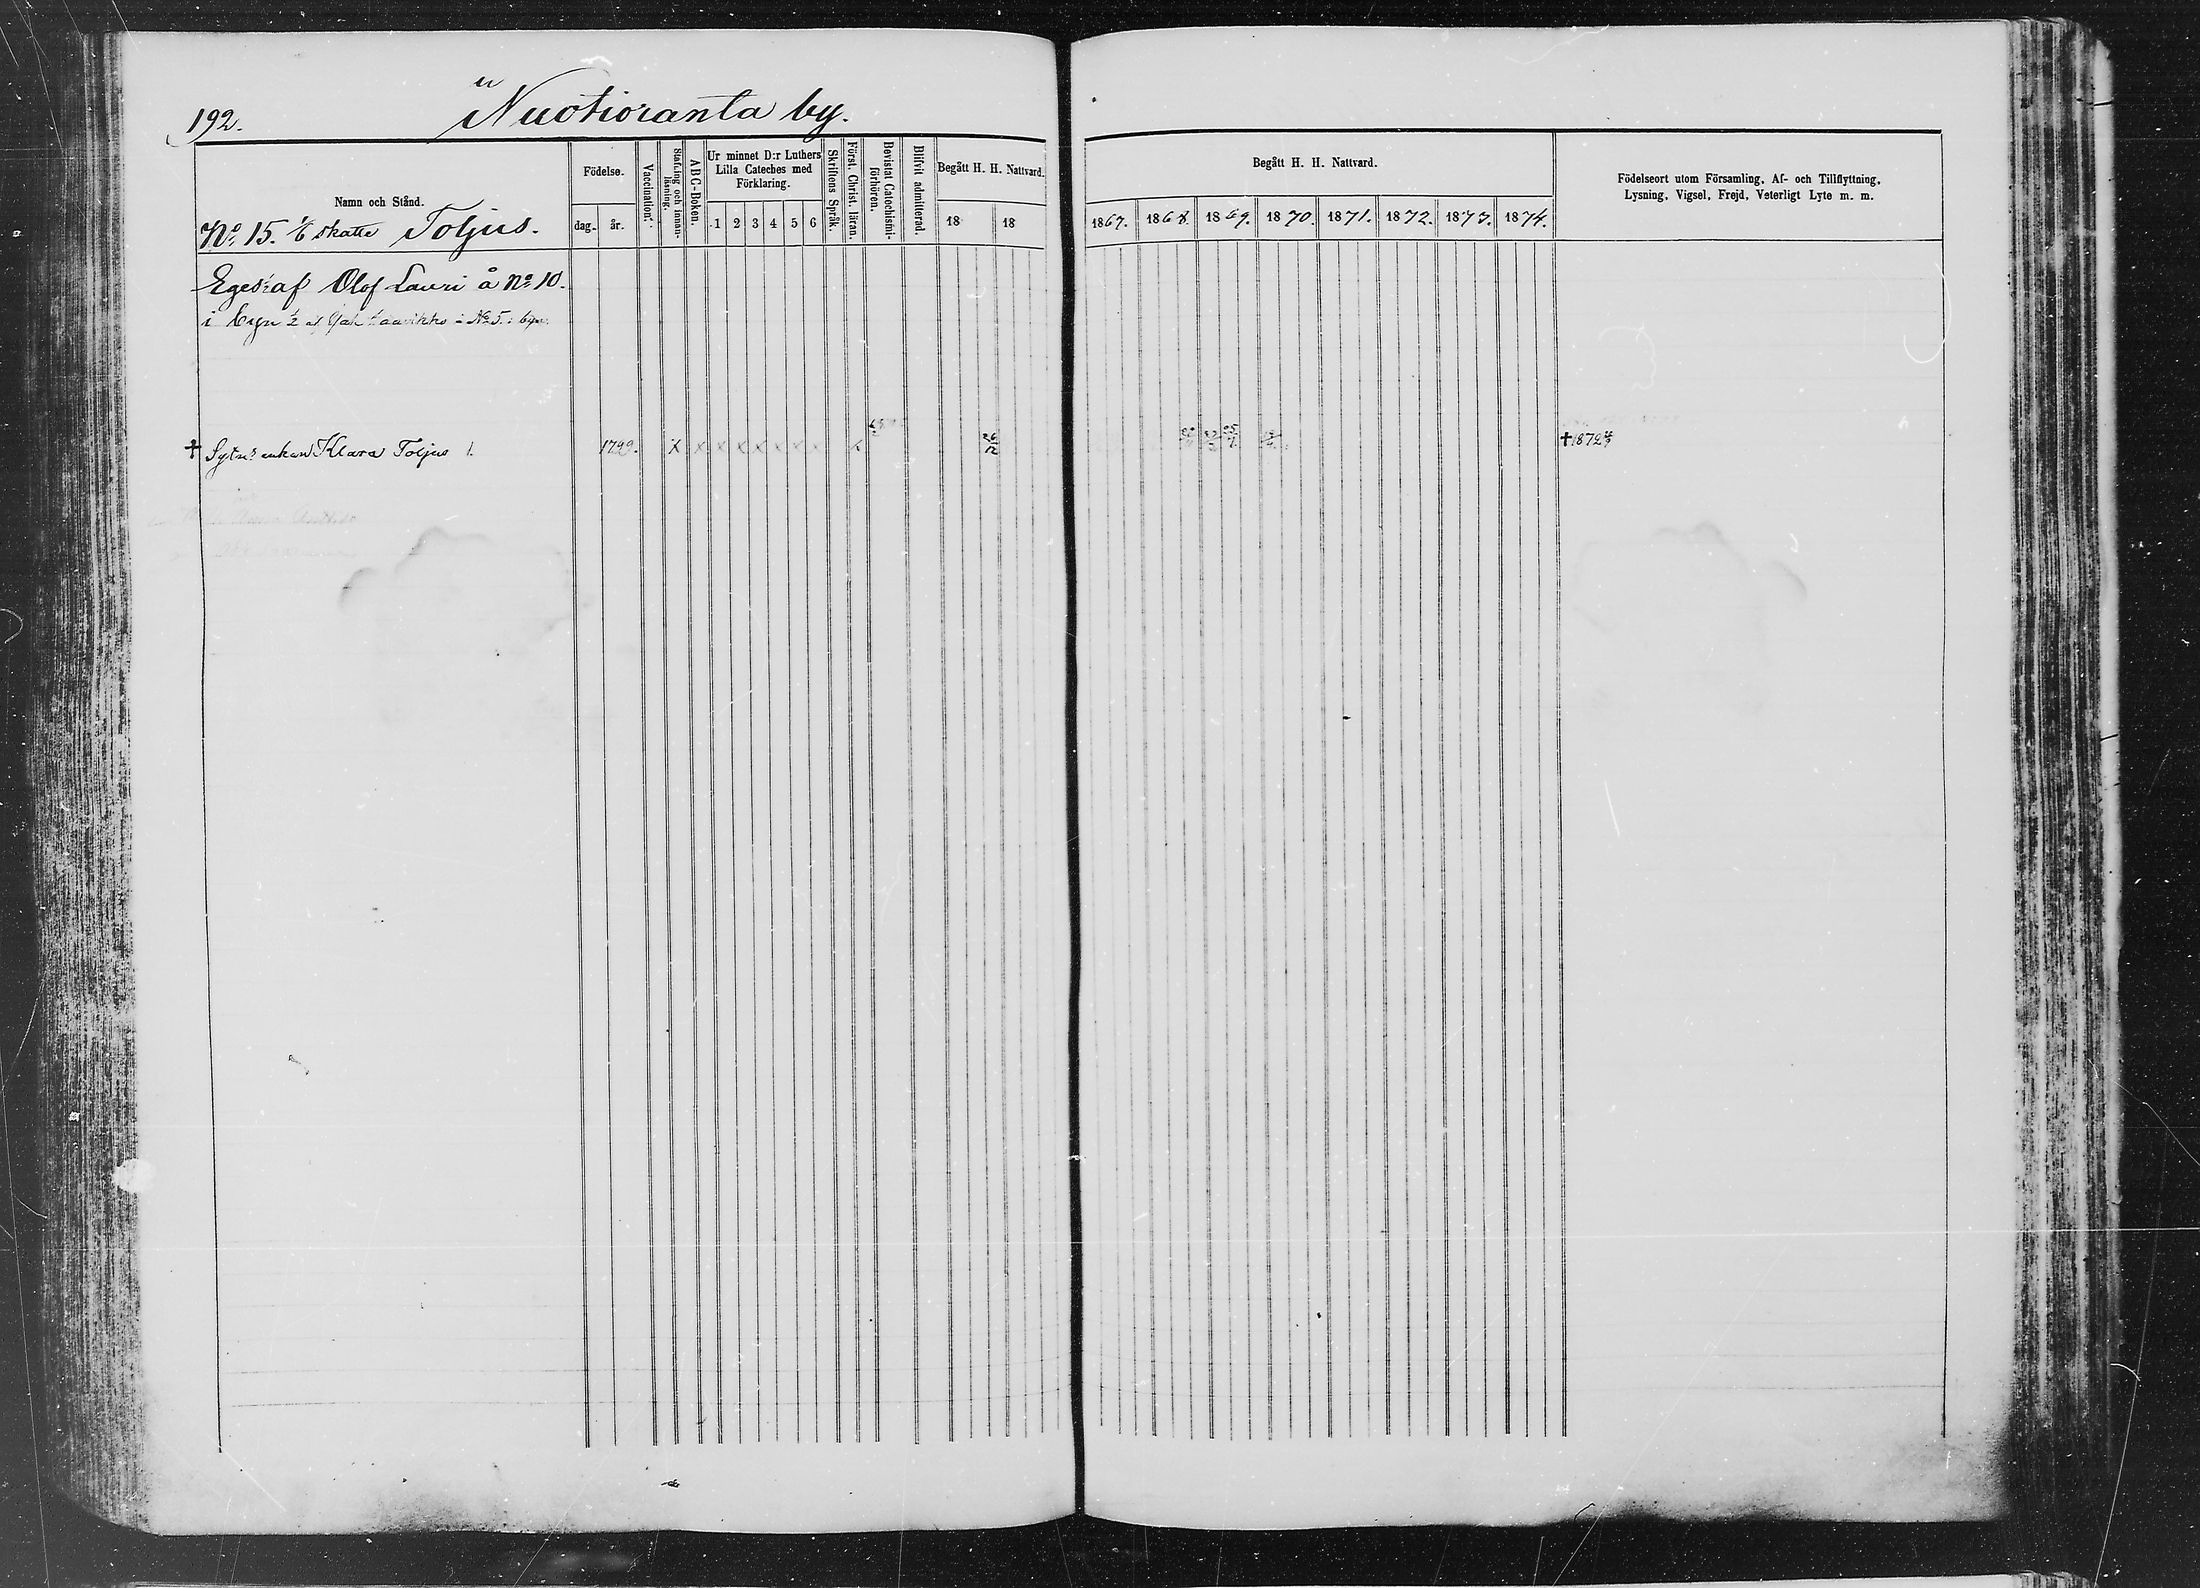 192.
Nuotioranta by.
Namn och Stånd.
Födelse.
dag.
år.
Vaccination.
Stafning och innan-läsning.
ABC-Boken.
Ur minnet D:r Luthers
Lilla Cateches med
Förklaring.
1 2 3 4 5 6
Skriftens Språk.
Först. Christ. läran.
Bevistat Catechismi-förhören.
Blifvit admitterad.
Begått H. H. Nattvard.
18 18
No 15. 1/6 skatte Toljus.
Eges af Olof Lauri å No 10.
i byn 1/2 af No 5. i byn.
† enkan Klara Toljus 1. 1799. X X X X X X X X X
Begått H. H. Nattvard.
1867. 1868. 1869. 1870. 1871. 1872. 1873. 1874.
Födelseort utom Församling, Af- och Tillflyttning,
Lysning, Vigsel, Frejd, Veterligt Lyte m. m.
† 1872